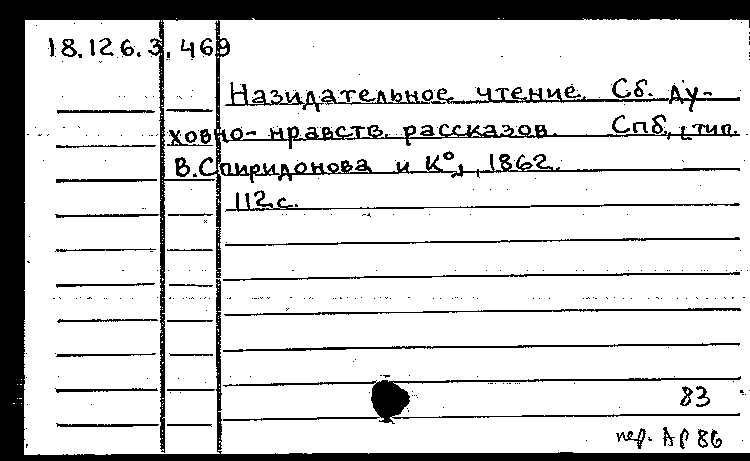 18.126.3.469
Назидательное чтение. Сб. ду-
ховно-нравств. рассказов. Спб, [тип.
В. Спиридонова и К°], 1862.
112 с.
83
пер. АР 86